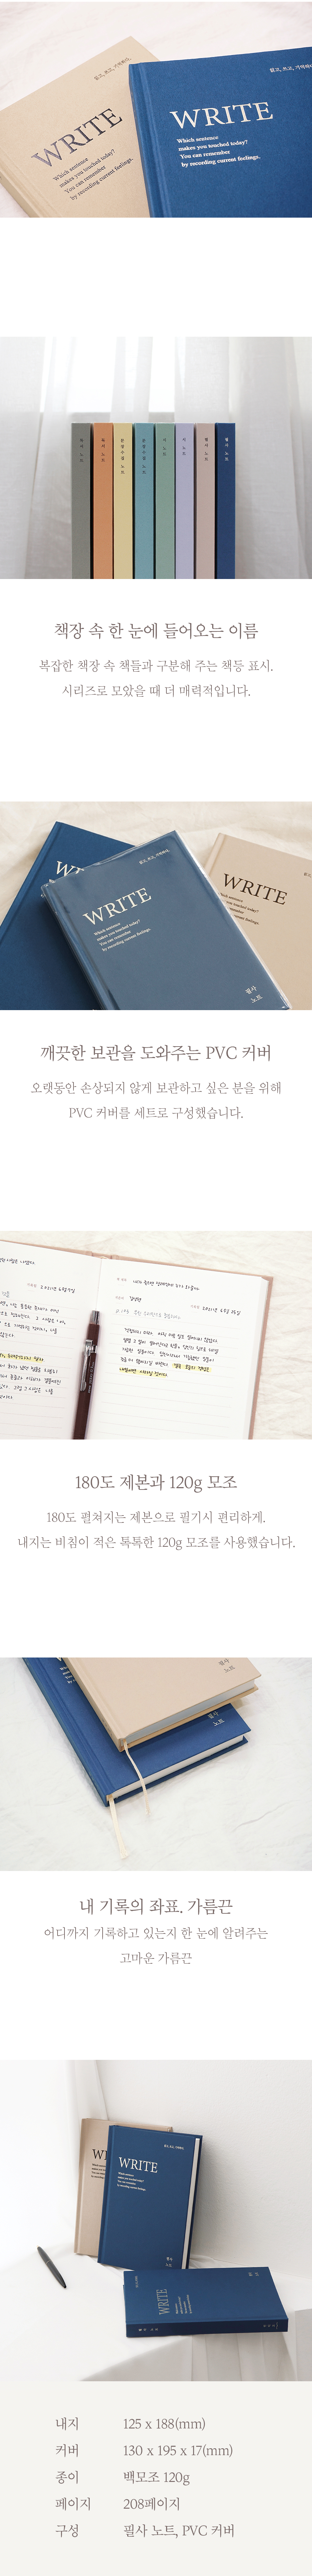 읽고, 쓰고, 기억하다.
WRITE
Which sentence
makes you touched today?
You can remember
by recording current feelings.
WRITE
Which sentence
makes you touched today?
You can remember
by recording current feelings.
독서 노트
독서 노트
문장수집 노트
문장수집 노트
시 노트
시 노트
필사 노트
필사 노트
책장 속 한 눈에 들어오는 이름
복잡한 책장 속 책들과 구분해 주는 책등 표시.
시리즈로 모았을 때 더 매력적입니다.
읽고, 쓰고, 기억하다.
WRITE
Which sentence
makes you touched today?
You can remember
by recording current feelings.
필사
노트
WRITE
깨끗한 보관을 도와주는 PVC 커버
오랫동안 손상되지 않게 보관하고 싶은 분을 위해
PVC 커버를 세트로 구성했습니다.
180도 제본과 120g 모조
180도 펼쳐지는 제본으로 필기시 편리하게.
내지는 비침이 적은 톡톡한 120g 모조를 사용했습니다.
필사
노트
필사
노트
내 기록의 좌표. 가름끈
어디까지 기록하고 있는지 한 눈에 알려주는
고마운 가름끈
WRITE
Which sentence
makes you touched today?
You can remember
by recording current feelings.
필사
노트
WRITE
내지 125 x 188(mm)
커버 130 x 195 x 17(mm)
종이 백모조 120g
페이지 208페이지
구성 필사 노트, PVC 커버